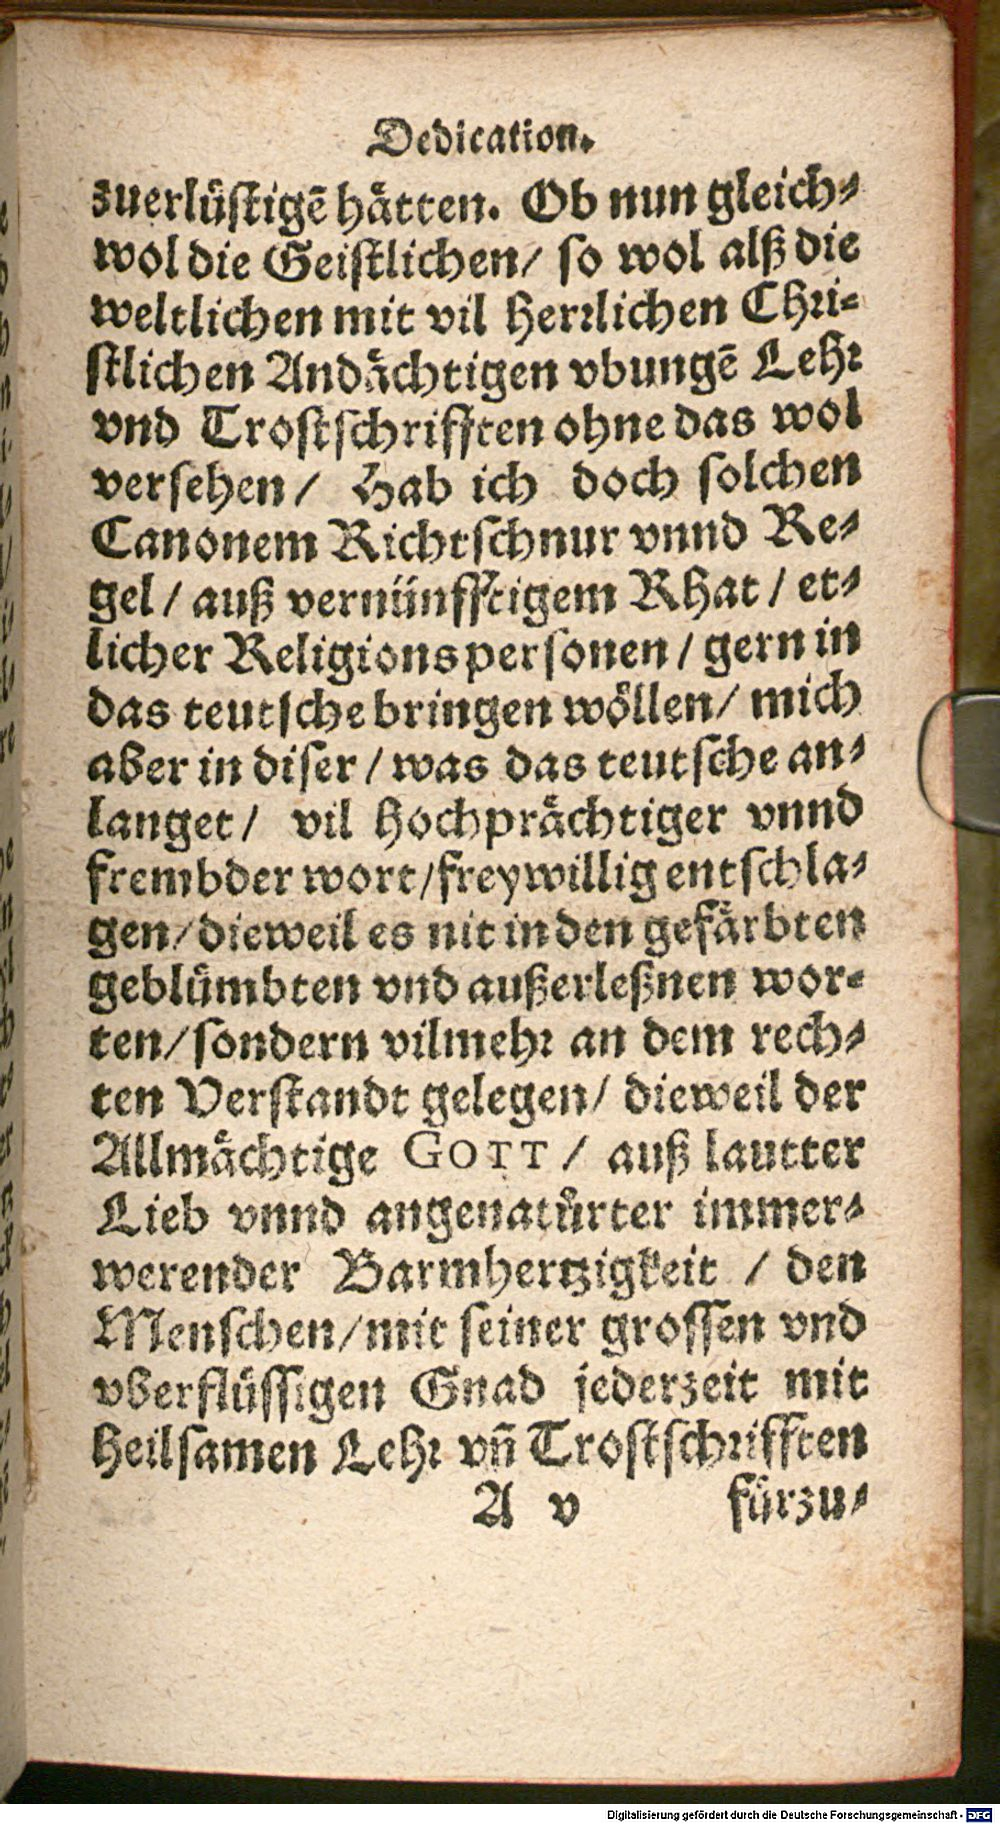 Dedication.
zuerlüstigẽ hätten. Ob nun gleich-
wol die Geistlichen/ so wol alß die
weltlichen mit vil herrlichen Chri-
stlichen Andächtigen vbungẽ Lehr
vnd Trostschrifften ohne das wol
versehen/ Hab ich doch solchen
Canonem Richtschnur vnnd Re-
gel/ auß vernünfftigem Rhat/ et-
licher Religionspersonen/ gern in
das teutsche bringen wöllen/ mich
aber in diser/ was das teutsche an-
langet/ vil hochprächtiger vnnd
frembder wort/ freywillig entschla-
gen/ dieweil es nit in den gefärbten
geblümbten vnd außerleßnen wor-
ten/ sondern vilmehr an dem rech-
ten Verstandt gelegen/ dieweil der
Allmächtige GOTT/ auß lautter
Lieb vnnd angenatürter immer-
werender Barmhertzigkeit / den
Menschen/ mit seiner grossen vnd
vberflüssigen Gnad jederzeit mit
heilsamen Lehr vñ Trostschrifften
A v fürzu-
Digitalisierung gefördert durch die Deutsche Forschungsgemeinschaft - DFG